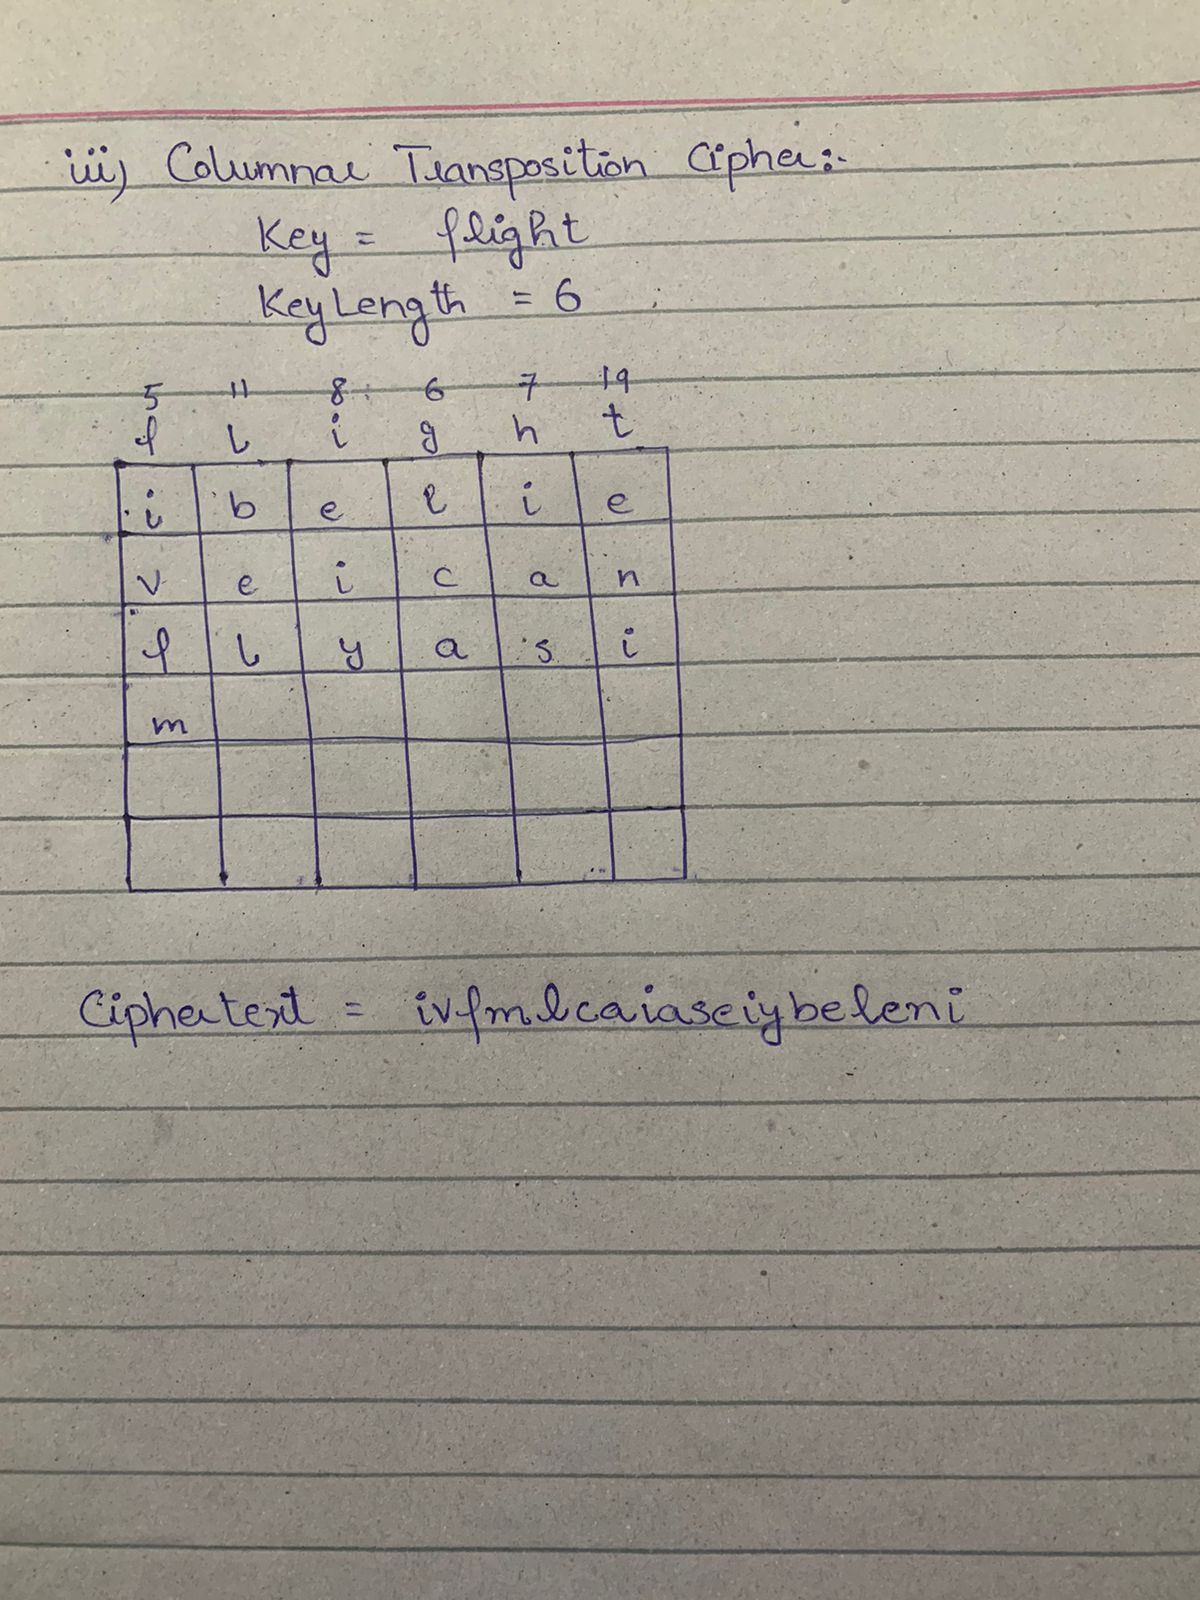 iii) Columnar Transposition Cipher:-
Key = flight
Key Length = 6
5 11 8 6 7 19
f l i g h t
i b e l i e
v e i c a n
f l y a s i
m
Ciphertext = ivfmlcaiaseiybeleni